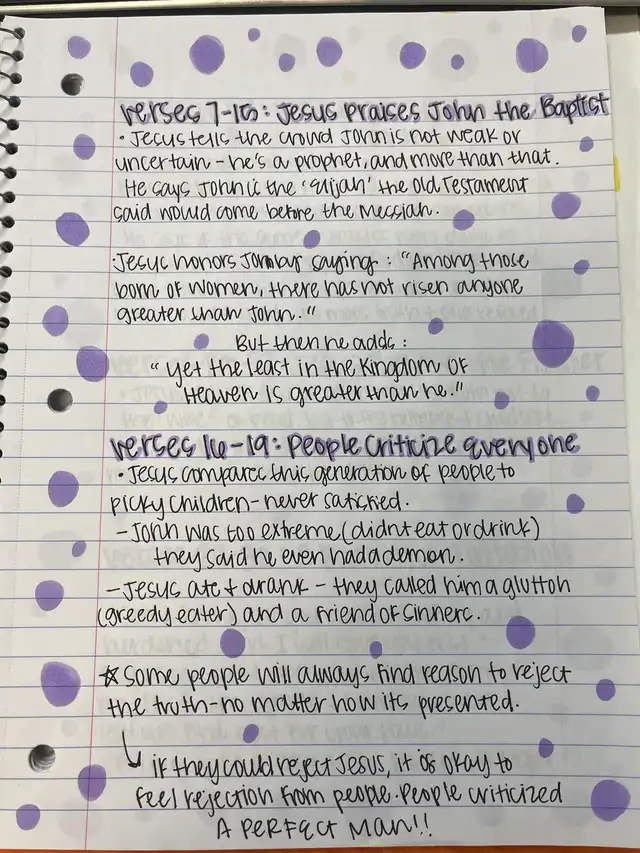 Verses 7-15: Jesus Praises John the Baptist
• Jesus tells the crowd John is not weak or
uncertain - he's a prophet, and more than that.
He says John is the 'Elijah' the Old Testament
said would come before the Messiah.
• Jesus honors John by saying: "Among those
born of women, there has not risen anyone
greater than John."
But then he adds:
"Yet the least in the Kingdom of
Heaven is greater than he."
Verses 16-19: People Criticize Everyone
• Jesus compares this generation of people to
picky children - never satisfied.
- John was too extreme (didnt eat or drink)
they said he even had a demon.
- Jesus ate + drank - they called him a glutton
(greedy eater) and a friend of sinners.
☆ Some people will always find reason to reject
the truth - no matter how its presented.
↳ if they could reject Jesus, it is okay to
feel rejection from people. People criticized
A PERFECT MAN!!